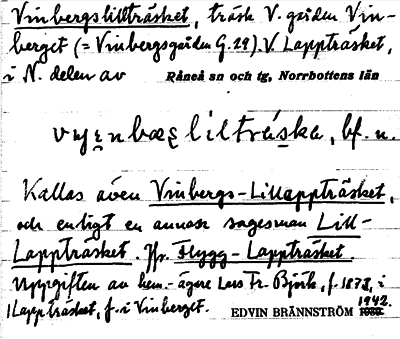 Vinbergslillträsket, träsk V. gården Vin-
berget (= Vinbergsgården G. 29) V. Lappträsket,
i N. delen av Råneå sn och tg, Norrbottens län
lilträska, bf. n.
Kallas även Vinbergs-Lillappträsket,
och enligt en annan sagesman Lill-
Lappträsket. Jfr Flygg-Lappträsket.
Uppgiften av hem.-ägare Lars Fr. Björk, f. 1878, i
Lappträsket, f. i Vinberget.
EDVIN BRÄNNSTRÖM 1942.